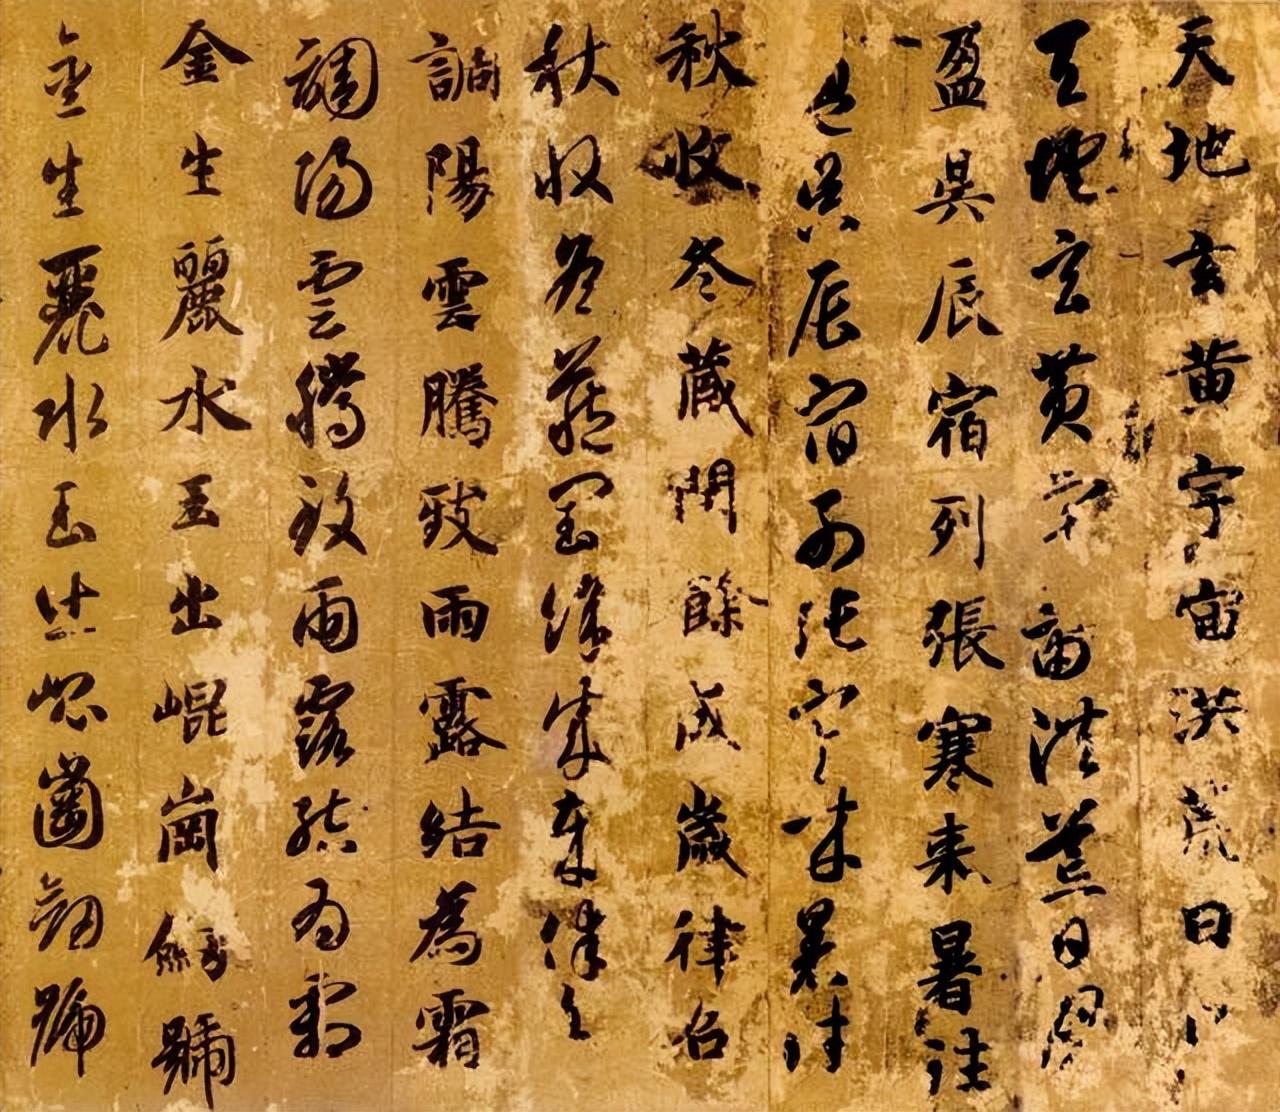 天地玄黄宇宙洪荒日
天地玄黄宇宙洪荒日月
盈昃辰宿列張寒来暑往
昃辰宿列張寒来暑往
秋收冬蔵閏餘成歲律召
秋收冬蔵閏餘成歲律召
調陽雲騰致雨露結為霜
調陽雲騰致雨露結為霜
金生麗水玉出崐崗劔號
金生麗水玉出崐崗劔號